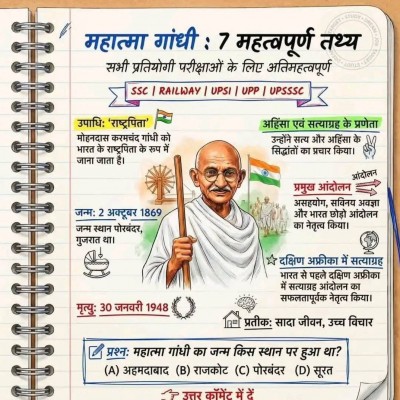 महात्मा गांधी : 7 महत्वपूर्ण तथ्य
सभी प्रतियोगी परीक्षाओं के लिए अतिमहत्वपूर्ण
SSC | RAILWAY | UPSI | UPP | UPSSSC
उपाधि: 'राष्ट्रपिता'
मोहनदास करमचंद गांधी को
भारत के राष्ट्रपिता के रूप में
जाना जाता है।
अहिंसा एवं सत्याग्रह के प्रणेता
उन्होंने सत्य और अहिंसा के
सिद्धांतों का प्रचार किया।
आंदोलन
प्रमुख आंदोलन
असहयोग, सविनय अवज्ञा
और भारत छोड़ो आंदोलन
का नेतृत्व किया।
जन्म: 2 अक्टूबर 1869
जन्म स्थान पोरबंदर,
गुजरात था।
दक्षिण अफ्रीका में सत्याग्रह
भारत से पहले दक्षिण अफ्रीका
में सत्याग्रह आंदोलन का
सफलतापूर्वक नेतृत्व किया।
मृत्यु: 30 जनवरी 1948
प्रतीक: सादा जीवन, उच्च विचार
प्रश्न: महात्मा गांधी का जन्म किस स्थान पर हुआ था?
(A) अहमदाबाद (B) राजकोट (C) पोरबंदर (D) सूरत
उत्तर कॉमेंट में दें